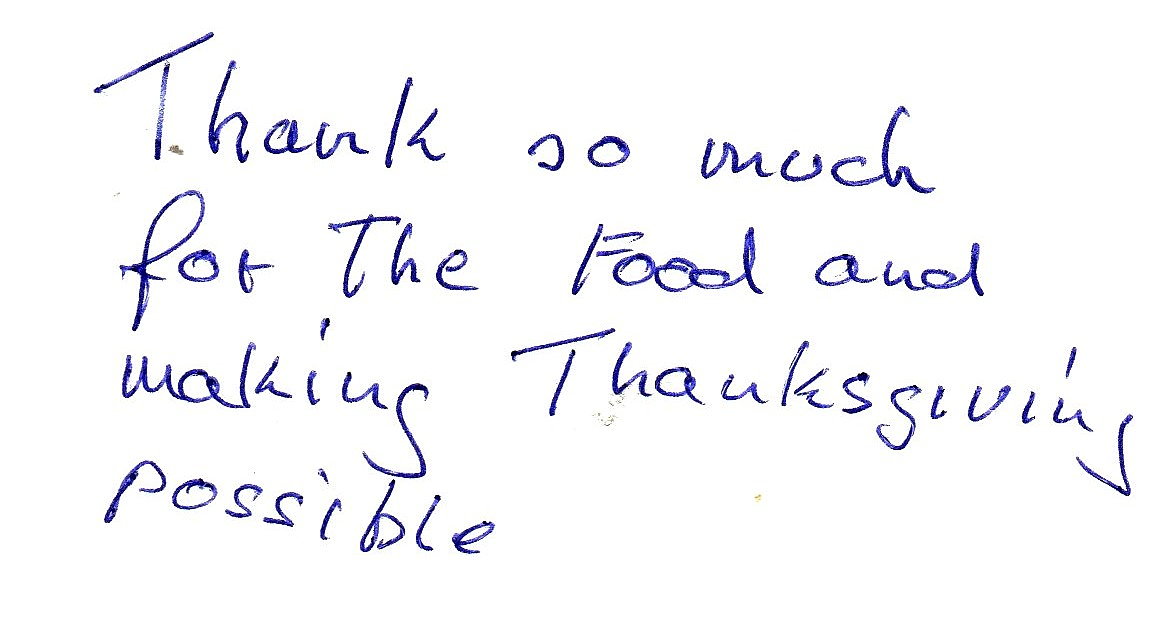 Thank so much
for The Food and
making Thanksgiving
possible